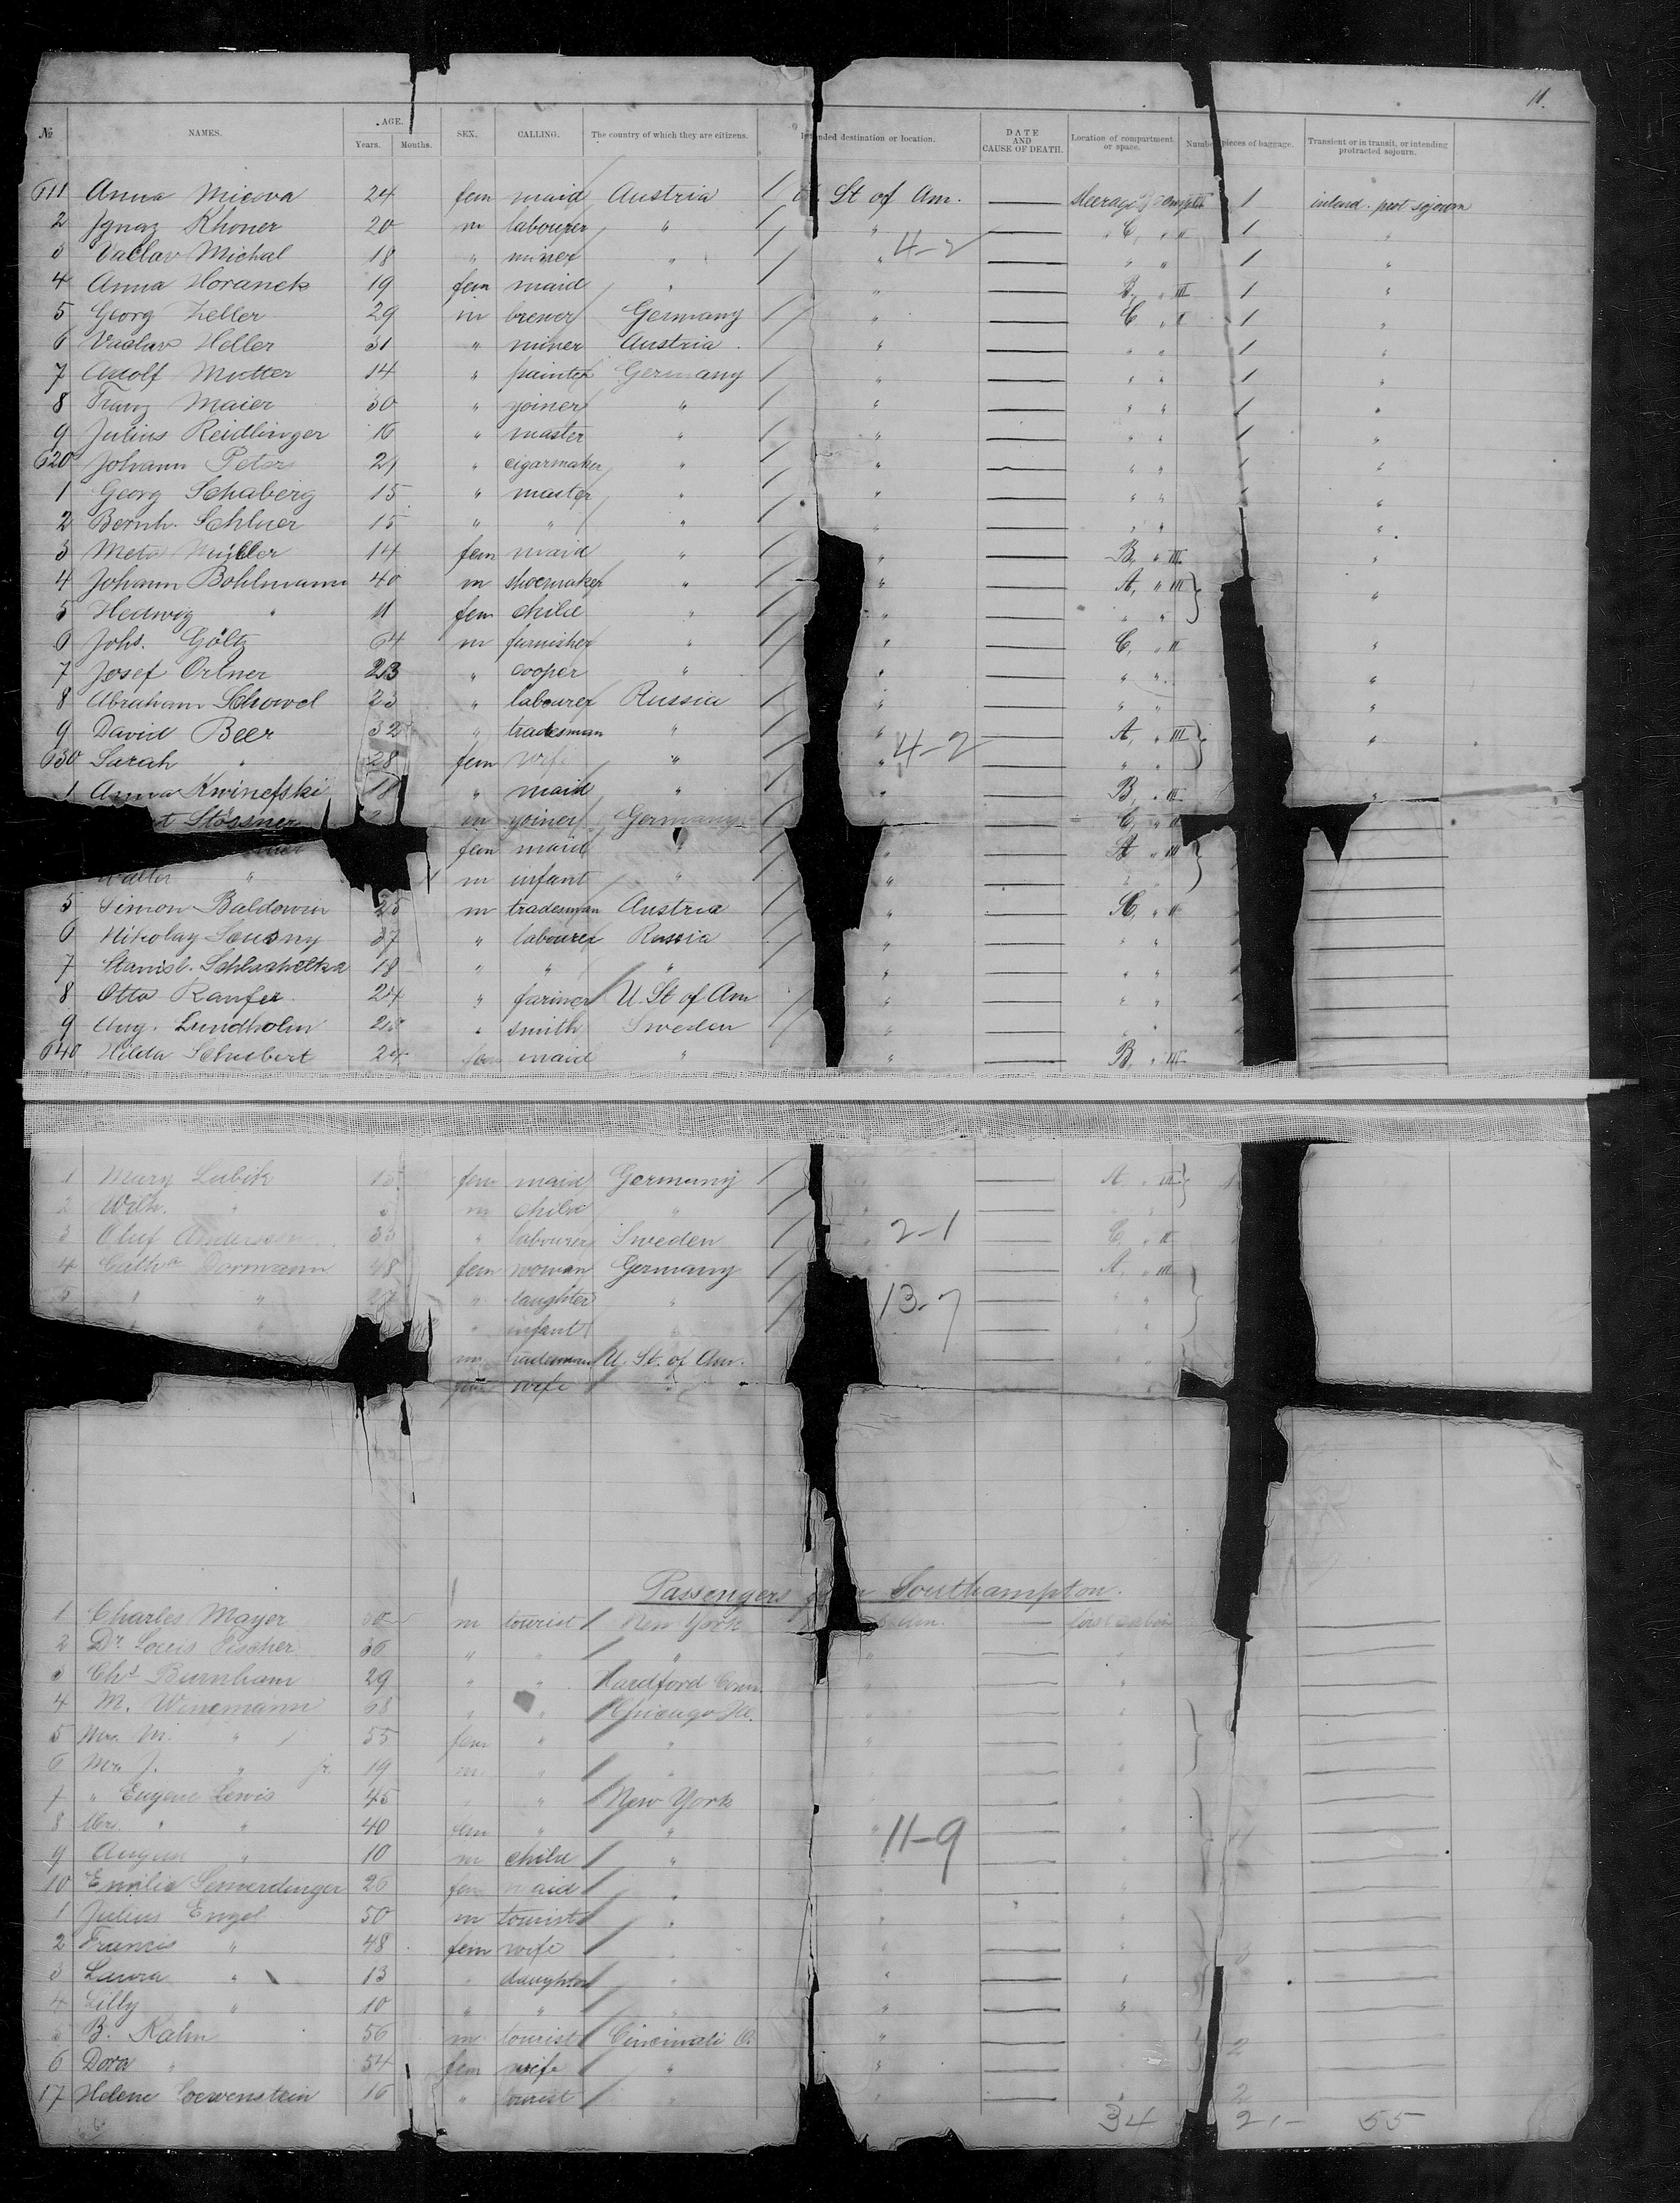 11.
№ NAMES. AGE. Years. Months. SEX. CALLING. The country of which they are citizens. nded destination or location. DATE AND CAUSE OF DEATH. Location of compartment or space. Numbe pieces of baggage. Transient or in transit, or intending protracted sojourn.
611 Anna Micova 24 fem maid Austria St of Am. — steerage 1 intend. prot sojourn
2 Ignaz Khoner 20 m labourer " " — " C, " II 1 "
3 Vaclav Michal 18 " miner " " 4-2 — " " 1 "
4 Anna Horanek 19 fem maid " " — B, " III 1 "
5 Georg Zeller 29 m brewer Germany " — C, " II 1 "
6 Vaclav Heller 31 " miner Austria " — " " 1 "
7 Adolf Mutter 14 " painter Germany " — " " 1 "
8 Franz Maier 30 " yoiner " " — " " 1 "
9 Julius Reidlinger 16 " master " " — " " 1 "
620 Johann Peters 21 " cigarmaker " " — " " 1 "
1 Georg Schaberg 15 " master " " — " " 1 "
2 Bernh. Schluer 15 " " " " — " " "
3 Meta Müller 14 fem maid " " — B, " III "
4 Johann Bohlmann 40 m shoemaker " " — A, " III "
5 Hedwig " 11 fem child " — " "
6 Johs. Göltz 64 m furnisher " " — C, " II "
7 Josef Ortner 23 " cooper " " — " " "
8 Abraham Schowel 23 " labourer Russia " — " " "
9 David Beer 32 " tradesman " " — A, " III "
630 Sarah " 28 fem wife " " 4-2 — " "
1 Anna Kwinefski 18 " maid " " — B, " III "
t Stössner m yoiner Germany — C, " II —
fem maid " " — A " III —
Walter " m infant " " — " —
5 Simon Baldowin 25 m tradesman Austria " — " II —
6 Nikolay Sousny 37 " labourer Russia " — " " —
7 Stanisl. Schlachetka 18 " " " " — " " —
8 Otto Ranfer 24 " farmer U. St of Am " — " " —
9 Aug. Lundholm 25 " smith Sweden " — " " —
640 Hilda Schubert 24 fem maid " " — B, " III —
1 Mary Lubik fem maid Germany — A, " III
2 Wilh. " m child " — " "
3 Oluf Andersson 33 " labourer Sweden " 2-1 — C, " II
4 Catha Dormann 48 fem woman Germany — A, " III
5 " " " daughter " 13-7 — " "
" infant " — " "
m tradesman U. St. of Am. — " "
fem wife " "
Passengers Southampton.
1 Charles Mayer 30 m tourist New York Am. — first cabin —
2 Dr Louis Fischer 36 " " " " — —
3 Chs Burnham 29 " " Hardford Conn. " — " —
4 M. Winemann 68 " " Chicago Ill. — " —
5 Mrs. M. " 55 fem " " " — —
6 Mr. J. " jr. 19 m. " " — " —
7 " Eugene Lewis 45 " " New York — " —
8 Mrs. " " 40 fem " " " 11-9 — " 4 —
9 August " 10 m child " — —
10 Emilie Semerdinger 26 fem maid " — " —
1 Julius Engel 50 m tourist " " — " —
2 Francis " 48 fem wife " " — " 3 —
3 Laura " 13 " daughter " " — " —
4 Lilly " 10 " " " " — " —
5 B. Kahn 56 m tourist Cincinnati O. " — 2 —
6 Dora " 54 fem wife " " — " —
17 Helene Loewenstein 16 " tourist " " — " 2 —
34 21- 55